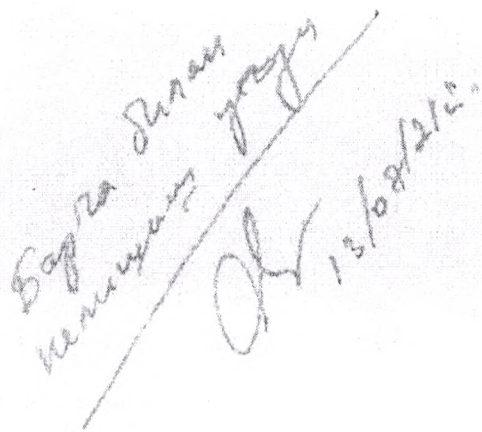 Барча билан
келишиш учун
13/08/21й.